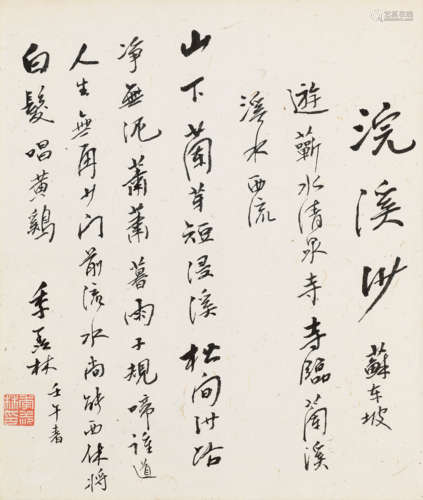 浣溪沙 蘇东坡
遊蘄水清泉寺寺臨蘭溪
溪水西流
山下蘭芽短浸溪 松间沙路
净無泥蕭蕭暮雨子規啼誰道
人生無再少门前流水尚能西休将
白髮唱黄鷄 季羡林 壬午春